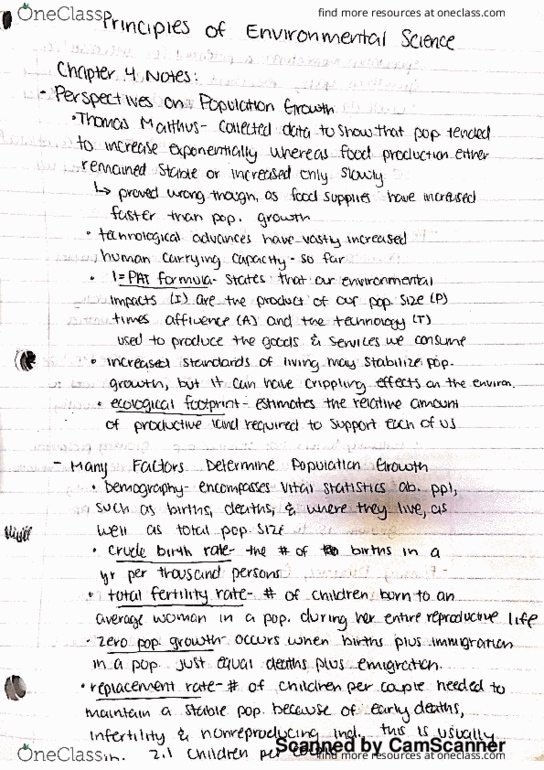 OneClass
find more resources at oneclass.com
Principles of Environmental Science
Chapter 4 Notes:
- Perspectives on Population Growth
• Thomas Malthus- collected data to show that pop tended
to increase exponentially whereas food production either
remained stable or increased only slowly
↳ proved wrong though, as food supplies have increased
faster than pop. growth
• technological advances have vastly increased
human carrying capacity - so far
• I=PAT formula- states that our environmental
impacts (I) are the product of our pop size (P)
times affluence (A) and the technology (T)
used to produce the goods & services we consume
• increased standards of living may stabilize pop.
growth, but it can have crippling effects on the environ.
• ecological footprint- estimates the relative amount
of productive land required to support each of us
- Many Factors Determine Population Growth
• Demography- encompasses vital statistics ab. ppl,
such as births, deaths, & where they live, as
well as total pop. size
• crude birth rate- the # of births in a
yr per thousand persons
• total fertility rate- # of children born to an
average woman in a pop. during her entire reproductive life
• zero pop. growth- occurs when births plus immigration
in a pop. just equal deaths plus emigration.
• replacement rate- # of children per couple needed to
maintain a stable pop. because of early deaths,
infertility & nonreproducing ind. this is usually
2.1 children per
Scanned by CamScanner
OneClass
find more resources at oneclass.com